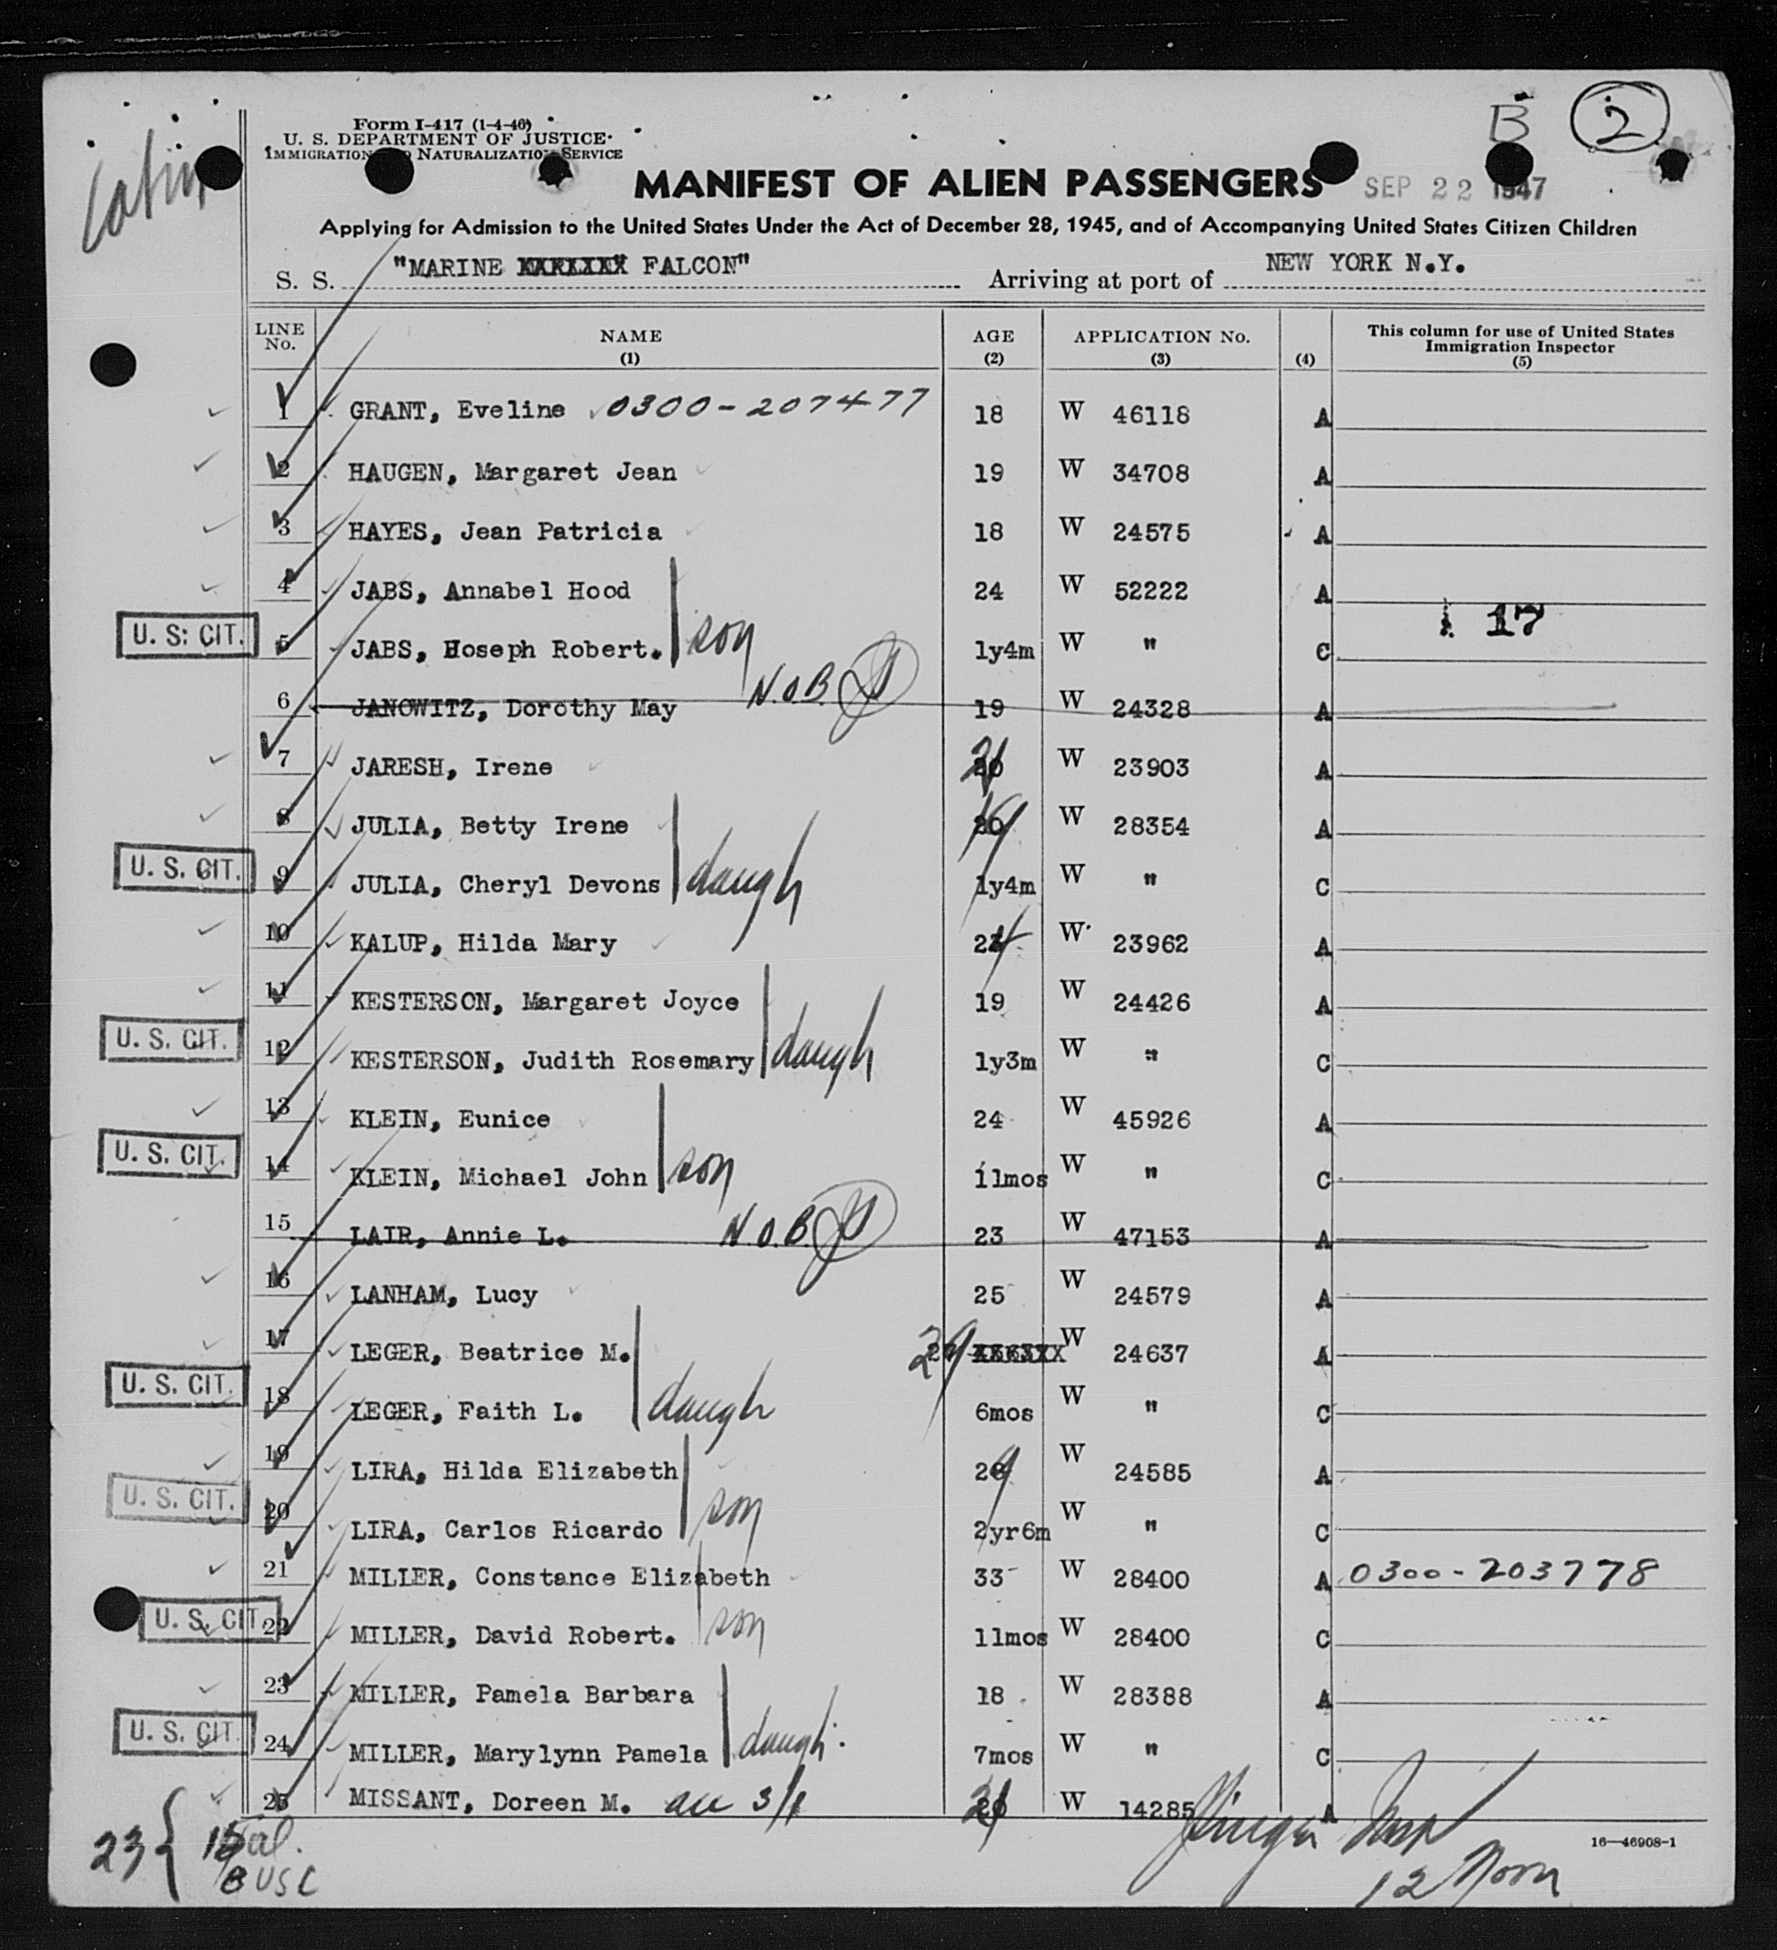 Form I-417 (1-4-46)
U. S. DEPARTMENT OF JUSTICE
IMMIGRATION NATURALIZATION SERVICE
B 2
Cabin
MANIFEST OF ALIEN PASSENGERS SEP 22 1947
Applying for Admission to the United States Under the Act of December 28, 1945, and of Accompanying United States Citizen Children
S. S. "MARINE XXXXXXX FALCON" Arriving at port of NEW YORK N.Y.
LINE No. NAME (1) AGE (2) APPLICATION No. (3) (4) This column for use of United States Immigration Inspector (5)
1 GRANT, Eveline 0300-207477 18 W 46118 A
2 HAUGEN, Margaret Jean 19 W 34708 A
3 HAYES, Jean Patricia 18 W 24575 A
4 JABS, Annabel Hood 24 W 52222 A
U. S. CIT. 5 JABS, Hoseph Robert. son 1y4m W " C 17
6 JANOWITZ, Dorothy May N.O.B. 19 W 24328 A
7 JARESH, Irene 21 W 23903 A
8 JULIA, Betty Irene 19 W 28354 A
U. S. CIT. 9 JULIA, Cheryl Devons daugh 1y4m W " C
10 KALUP, Hilda Mary 24 W 23962 A
11 KESTERSON, Margaret Joyce 19 W 24426 A
U. S. CIT. 12 KESTERSON, Judith Rosemary daugh 1y3m W " C
13 KLEIN, Eunice 24 W 45926 A
U. S. CIT. 14 KLEIN, Michael John son 11mos W " C
15 LAIR, Annie L. N.O.B. 23 W 47153 A
16 LANHAM, Lucy 25 W 24579 A
17 LEGER, Beatrice M. 29 W 24637 A
U. S. CIT. 18 LEGER, Faith L. daugh 6mos W " C
19 LIRA, Hilda Elizabeth 29 W 24585 A
U. S. CIT. 20 LIRA, Carlos Ricardo son 2yr6m W " C
21 MILLER, Constance Elizabeth 33 W 28400 A 0300-203778
U. S. CIT. 22 MILLER, David Robert. son 11mos W 28400 C
23 MILLER, Pamela Barbara 18 W 28388 A
U. S. CIT. 24 MILLER, Marylynn Pamela daugh. 7mos W " C
25 MISSANT, Doreen M. 21 W 14285 A
23 { 15 al.
8 USC
Insp
12 Noon
16—46908-1